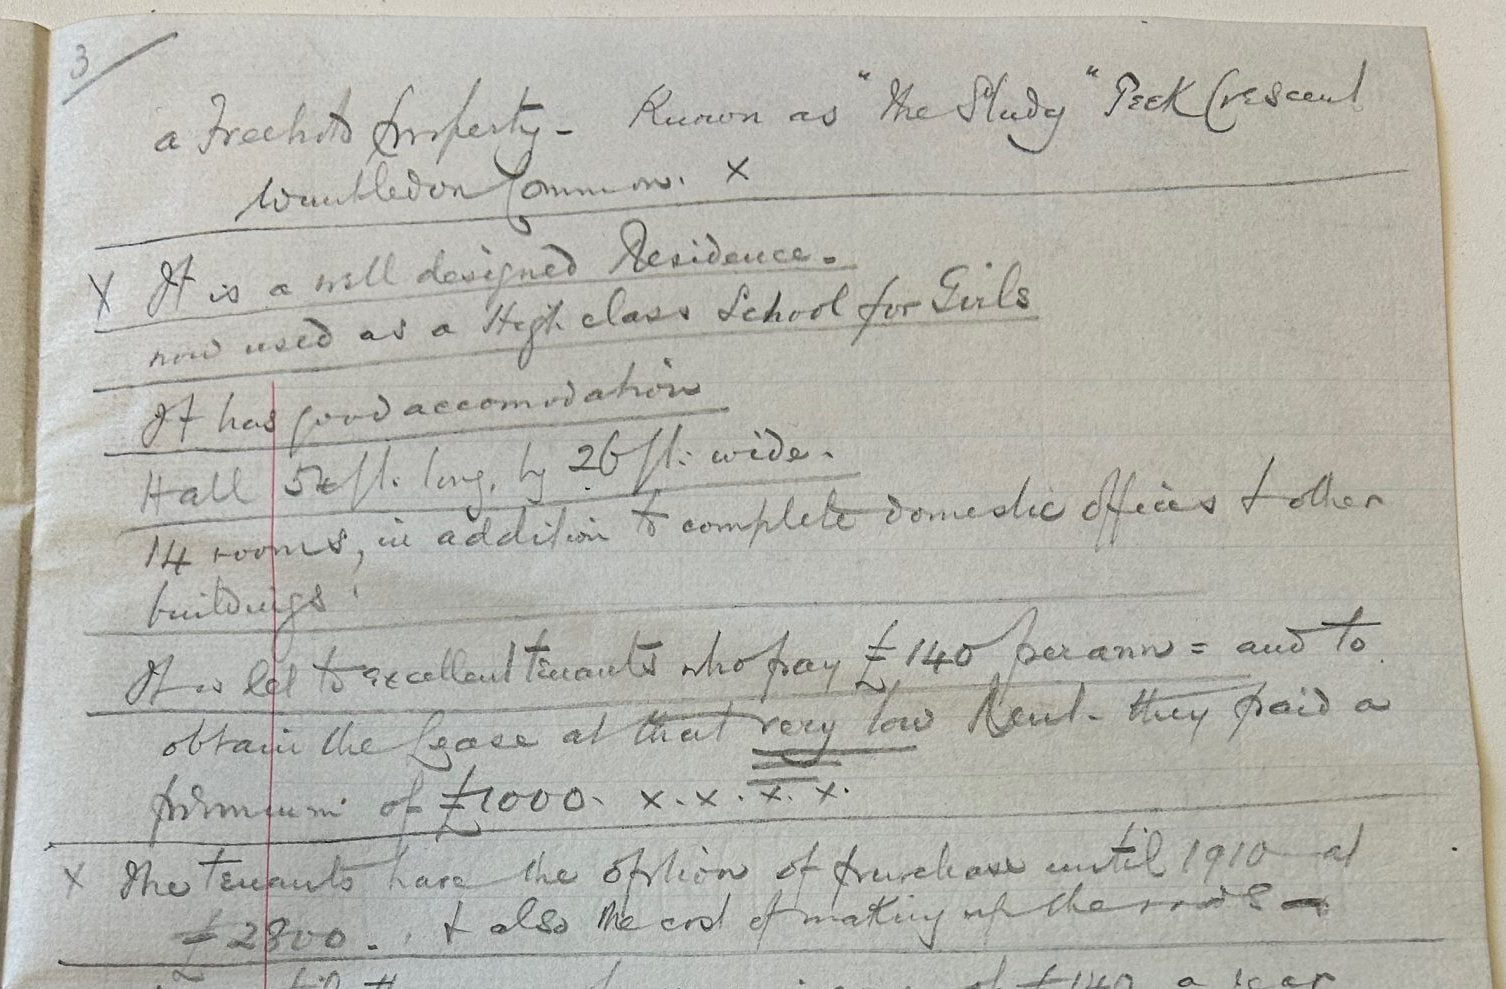 3
a Freehold property - Known as "The Study" Peek Crescent
Wimbledon Common. x
X It is a well designed Residence.
now used as a High class School for Girls
It has good accomodation
Hall 54 ft. long, by 26 ft. wide.
14 rooms, in addition to complete domestic offices & other
buildings.
It is let to excellent tenants who pay £140 per ann = and to
obtain the Lease at that very low Rent - they paid a
premium of £1000. x.x.x.x.
x The tenants have the option of purchase until 1910 at
£2800. . & also the cost of making up the roads -
of £140 a year